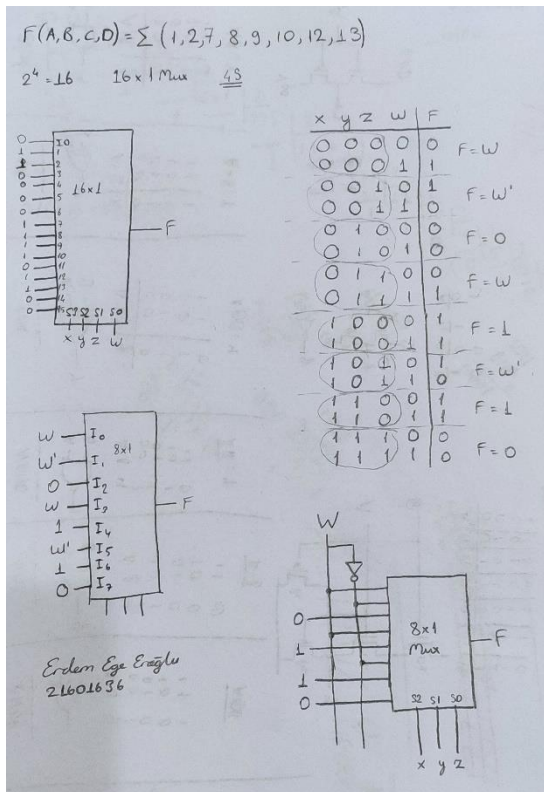 F(A,B,C,D) = Σ (1,2,7, 8,9,10,12,13)
2⁴=16 16x1 Mux 4S
0 I0
1 1
1 2
0 3
0 4
0 5
0 6
1 7
1 8
1 9
1 10
0 11
1 12
1 13
0 14
0 15
16x1
F
S3 S2 S1 S0
x y z w
x y z w F
0 0 0 0 0
0 0 0 1 1
F=w
0 0 1 0 1
0 0 1 1 0
F=w'
0 1 0 0 0
0 1 0 1 0
F=0
0 1 1 0 0
0 1 1 1 1
F=w
1 0 0 0 1
1 0 0 1 1
F=1
1 0 1 0 1
1 0 1 1 0
F=w'
1 1 0 0 1
1 1 0 1 1
F=1
1 1 1 0 0
1 1 1 1 0
F=0
w I0
w' I1
0 I2
w I3
1 I4
w' I5
1 I6
0 I7
8x1
F
w
0
1
1
0
8x1
Mux
F
S2 S1 S0
x y z
Erdem Ege Eroğlu
21601636